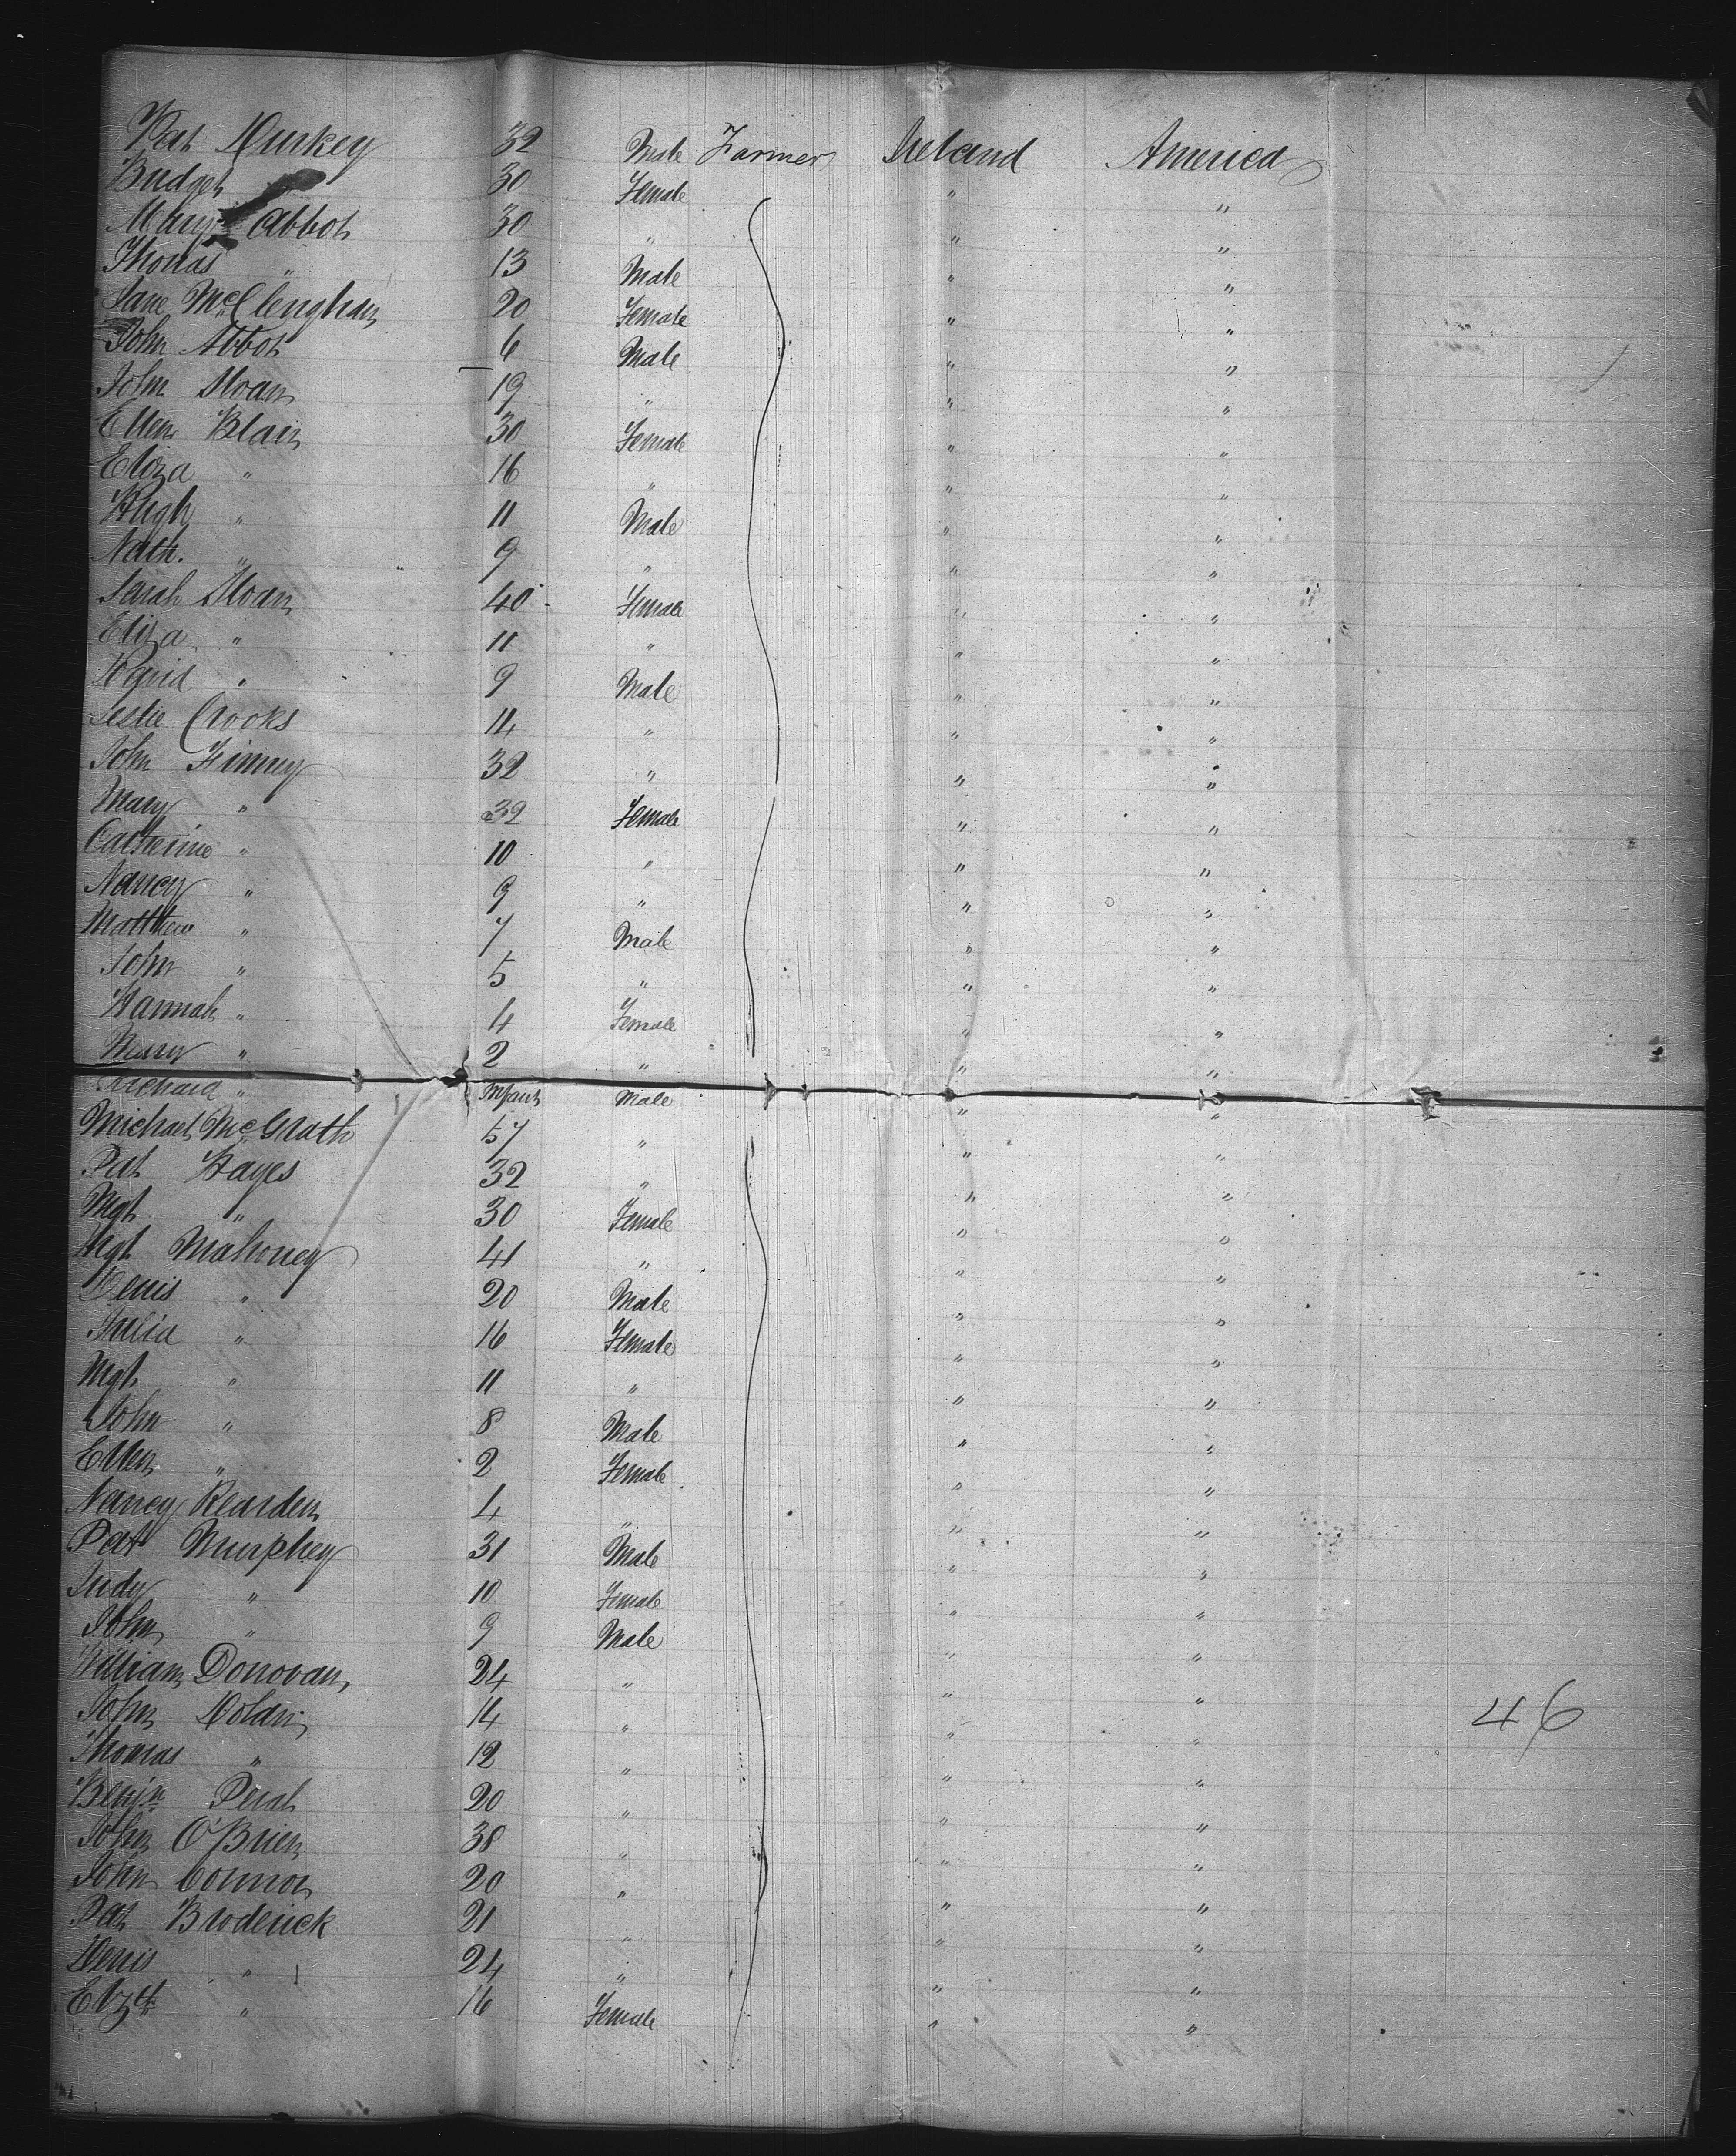 Pat Durkey 32 Male Farmer Ireland America
Bridget 30 Female " "
Mary Abbot 30 " " "
Thomas " 13 Male " "
Jane McClenghan 20 Female " "
John Abbot 6 Male " "
John Sloan 19 " " "
Ellen Blair 30 Female " "
Eliza " 16 " " "
Hugh " 11 Male " "
Nath. " 9 " " "
Sarah Sloan 40 Female " "
Eliza " 11 " " "
David " 9 Male " "
Leslie Crooks 14 " " "
John Finney 32 " " "
Mary " 32 Female " "
Catherine " 10 " " "
Nancy " 9 " " "
Matthew " 7 Male " "
John " 5 " " "
Hannah " 4 Female " "
Mary " 2 " " "
Richard " Infant Male " "
Michael McGrath 57 " " "
Pat Hayes 32 " " "
Mgt " 30 Female " "
Mgt Mahoney 41 " " "
Denis " 20 Male " "
Julia " 16 Female " "
Mgt " 11 " " "
John " 8 Male " "
Ellen " 2 Female " "
Nancy Rearden 4 " " "
Pat Murphey 31 Male " "
Judy " 10 Female " "
John " 9 Male " "
William Donovan 24 " " "
John Dolan 14 " " " 46
Thomas " 12 " " "
Benjn 20 " " "
John O'Brien 38 " " "
John Connor 20 " " "
Pat Broderick 21 " " "
Denis " 24 " " "
Elzth " 16 Female " "